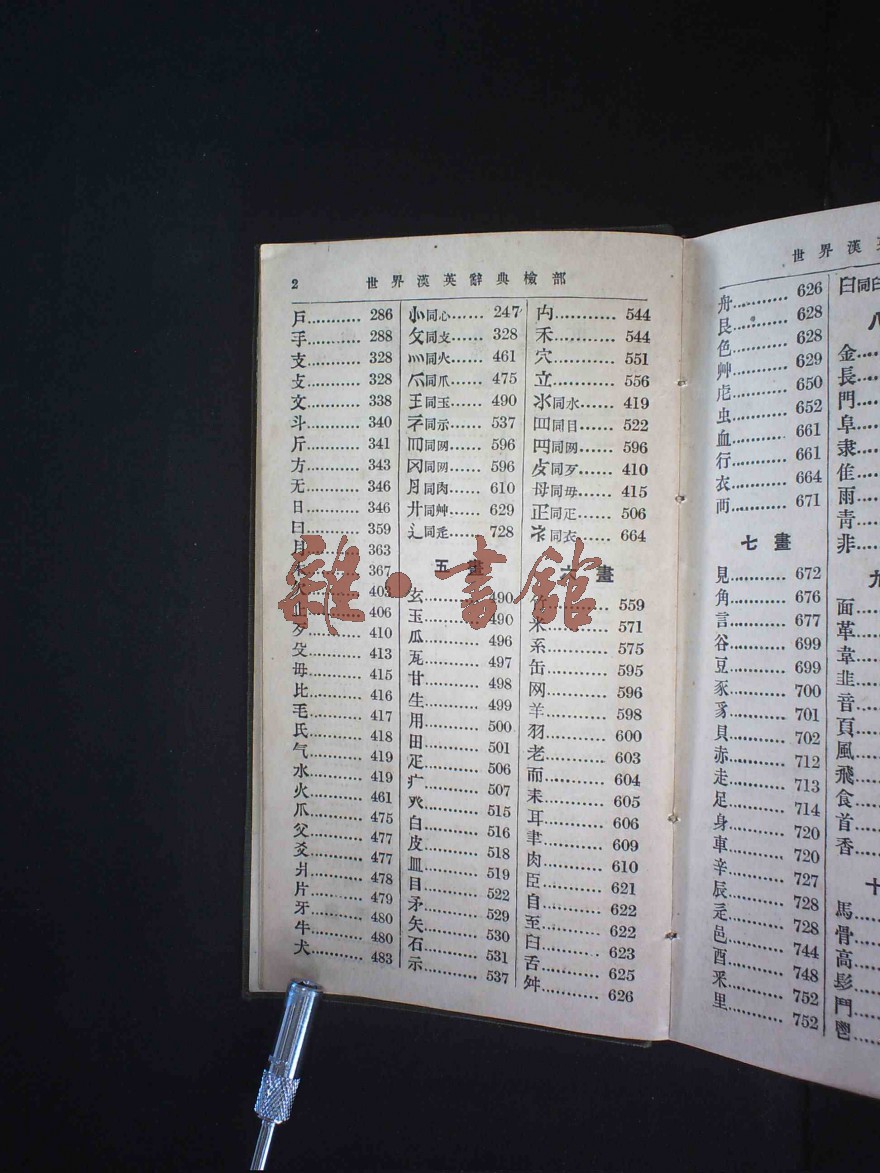 2
世界漢英辭典檢部
戶………… 286
手………… 288
支………… 328
攴………… 328
文………… 338
斗………… 340
斤………… 341
方………… 343
无………… 346
日………… 346
曰………… 359
月………… 363
木………… 367
欠………… 403
止………… 406
歹………… 410
殳………… 413
毋………… 415
比………… 416
毛………… 417
氏………… 418
气………… 419
水………… 419
火………… 461
爪………… 475
父………… 477
爻………… 477
爿………… 478
片………… 479
牙………… 480
牛………… 480
犬………… 483
⺗同心…… 247
攵同攴…… 328
灬同火…… 461
爫同爪…… 475
王同玉…… 490
礻同示…… 537
罒同网…… 596
冈同网…… 596
月同肉…… 610
廾同艸…… 629
辶同辵…… 728
五畫
玄………… 490
玉………… 490
瓜………… 496
瓦………… 497
甘………… 498
生………… 499
用………… 500
田………… 501
疋………… 506
疒………… 507
癶………… 515
白………… 516
皮………… 518
皿………… 519
目………… 522
矛………… 529
矢………… 530
石………… 531
示………… 537
禸………… 544
禾………… 544
穴………… 551
立………… 556
氺同水…… 419
罒同目…… 522
罓同网…… 596
歺同歹…… 410
母同毋…… 415
正同疋…… 506
衤同衣…… 664
六畫
竹………… 559
米………… 571
糸………… 575
缶………… 595
网………… 596
羊………… 598
羽………… 600
老………… 603
而………… 604
耒………… 605
耳………… 606
聿………… 609
肉………… 610
臣………… 621
自………… 622
至………… 622
臼………… 623
舌………… 625
舛………… 626
世界漢
舟………… 626
艮………… 628
色………… 628
艸………… 629
虍………… 650
虫………… 652
血………… 661
行………… 661
衣………… 664
襾………… 671
七畫
見………… 672
角………… 676
言………… 677
谷………… 699
豆………… 699
豕………… 700
豸………… 701
貝………… 702
赤………… 712
走………… 713
足………… 714
身………… 720
車………… 720
辛………… 727
辰………… 728
辵………… 728
邑………… 744
酉………… 748
釆………… 752
里………… 752
金
長
門
阜
隶
隹
雨
靑
非
九
面
革
韋
韭
音
頁
風
飛
食
首
香
十
馬
骨
高
髟
鬥
鬯
雜·書館